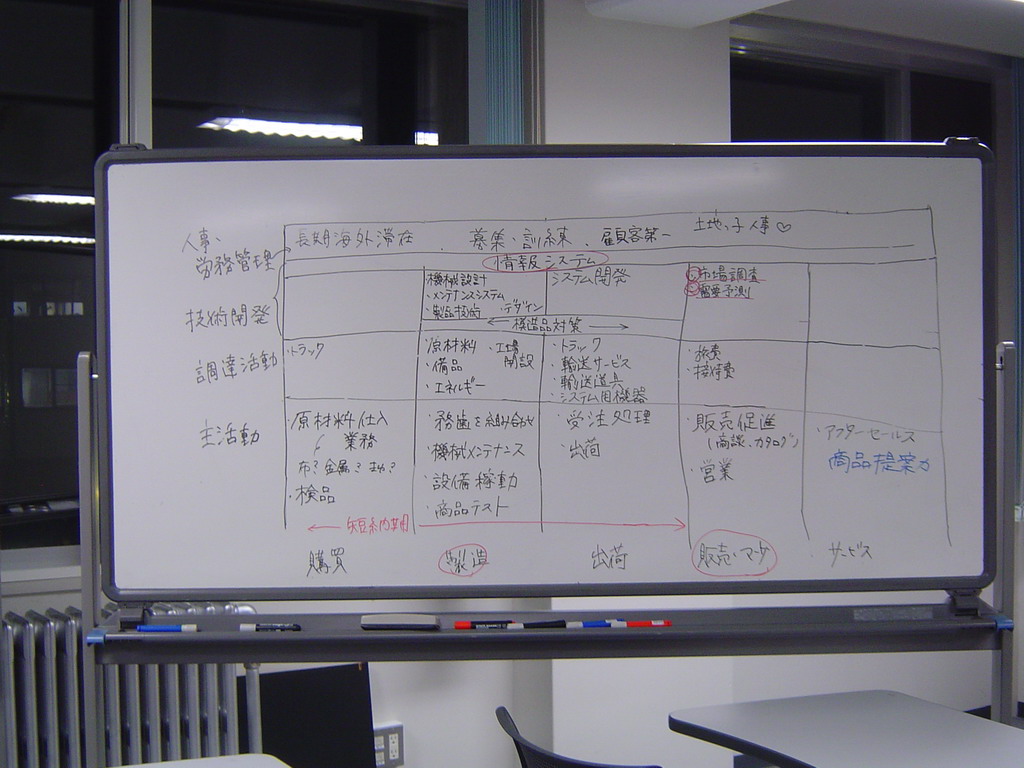 人事、
労務管理
長期海外滞在 、 募集、訓練 、 顧客第一 土地っ子人事♡
情報システム
技術開発
機械設計
・メンテナンスシステム
・製品技術 ・デザイン
システム開発
①市場調査
②需要予測
模造品対策
調達活動
・トラック
原材料 ・工場
・備品 開設
・エネルギー
・トラック
・輸送サービス
・輸送道具
・システム用機器
・旅費
・接待費
主活動
・原材料仕入
業務
布?金属?
・検品
・務歯を組み合わせ
・機械メンテナンス
・設備稼動
・商品テスト
・受注処理
・出荷
・販売促進
(商談、カタログ)
・営業
・アフターセールス
商品提案力
短納期
購買
製造
出荷
販売・マーケ
サービス